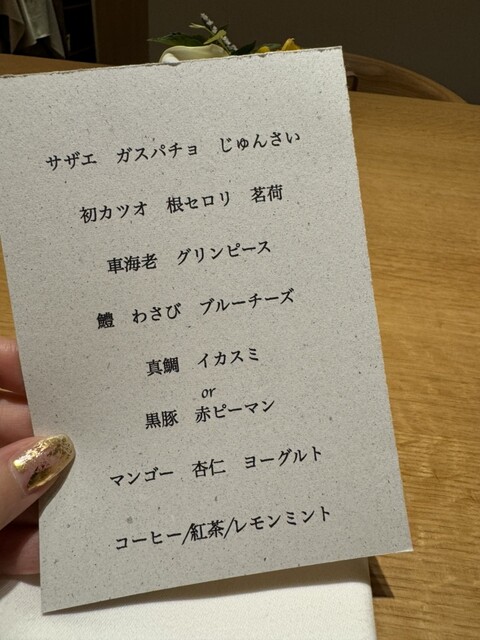 サザエ　ガスパチョ　じゅんさい
初カツオ　根セロリ　茗荷
車海老　グリンピース
鱧　わさび　ブルーチーズ
真鯛　イカスミ
or
黒豚　赤ピーマン
マンゴー　杏仁　ヨーグルト
コーヒー/紅茶/レモンミント